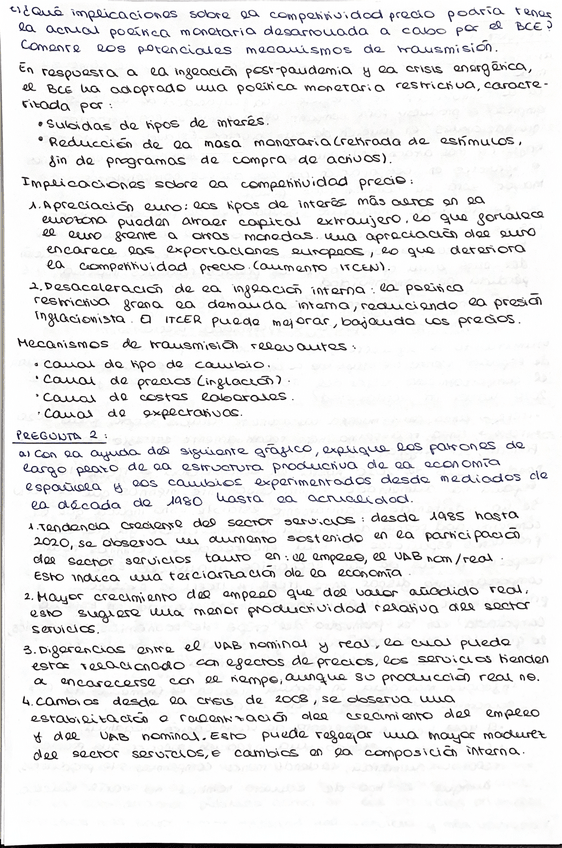 c) ¿Qué implicaciones sobre la competitividad precio podría tener
la actual política monetaria desarrollada a cabo por el BCE?
Comente los potenciales mecanismos de transmisión.
En respuesta a la inflación post-pandemia y la crisis energética,
el BCE ha adoptado una política monetaria restrictiva, caracte-
rizada por:
• Subidas de tipos de interés.
• Reducción de la masa monetaria (retirada de estímulos,
fin de programas de compra de activos).
Implicaciones sobre la competitividad precio:
1. Apreciación euro: los tipos de interés más altos en la
eurozona pueden atraer capital extranjero, lo que fortalece
el euro frente a otras monedas. Una apreciación del euro
encarece las exportaciones europeas, lo que deteriora
la competitividad precio (aumento ITCEN).
2. Desaceleración de la inflación interna: la política
restrictiva frena la demanda interna, reduciendo la presión
inflacionista. El ITCER puede mejorar, bajando los precios.
Mecanismos de transmisión relevantes:
• Canal de tipo de cambio.
• Canal de precios (inflación).
• Canal de costes laborales.
• Canal de expectativas.
PREGUNTA 2:
a) Con la ayuda del siguiente gráfico, explique los patrones de
largo plazo de la estructura productiva de la economía
española y los cambios experimentados desde mediados de
la década de 1980 hasta la actualidad.
1. Tendencia creciente del sector servicios: desde 1985 hasta
2020, se observa un aumento sostenido en la participación
del sector servicios tanto en: el empleo, el VAB nom/real.
Esto indica una terciarización de la economía.
2. Mayor crecimiento del empleo que del valor añadido real,
esto sugiere una menor productividad relativa del sector
servicios.
3. Diferencias entre el VAB nominal y real, la cual puede
estar relacionado con efectos de precios, los servicios tienden
a encarecerse con el tiempo, aunque su producción real no.
4. Cambios desde la crisis de 2008, se observa una
estabilización o ralentización del crecimiento del empleo
y del VAB nominal. Esto puede reflejar una mayor madurez
del sector servicios, o cambios en la composición interna.